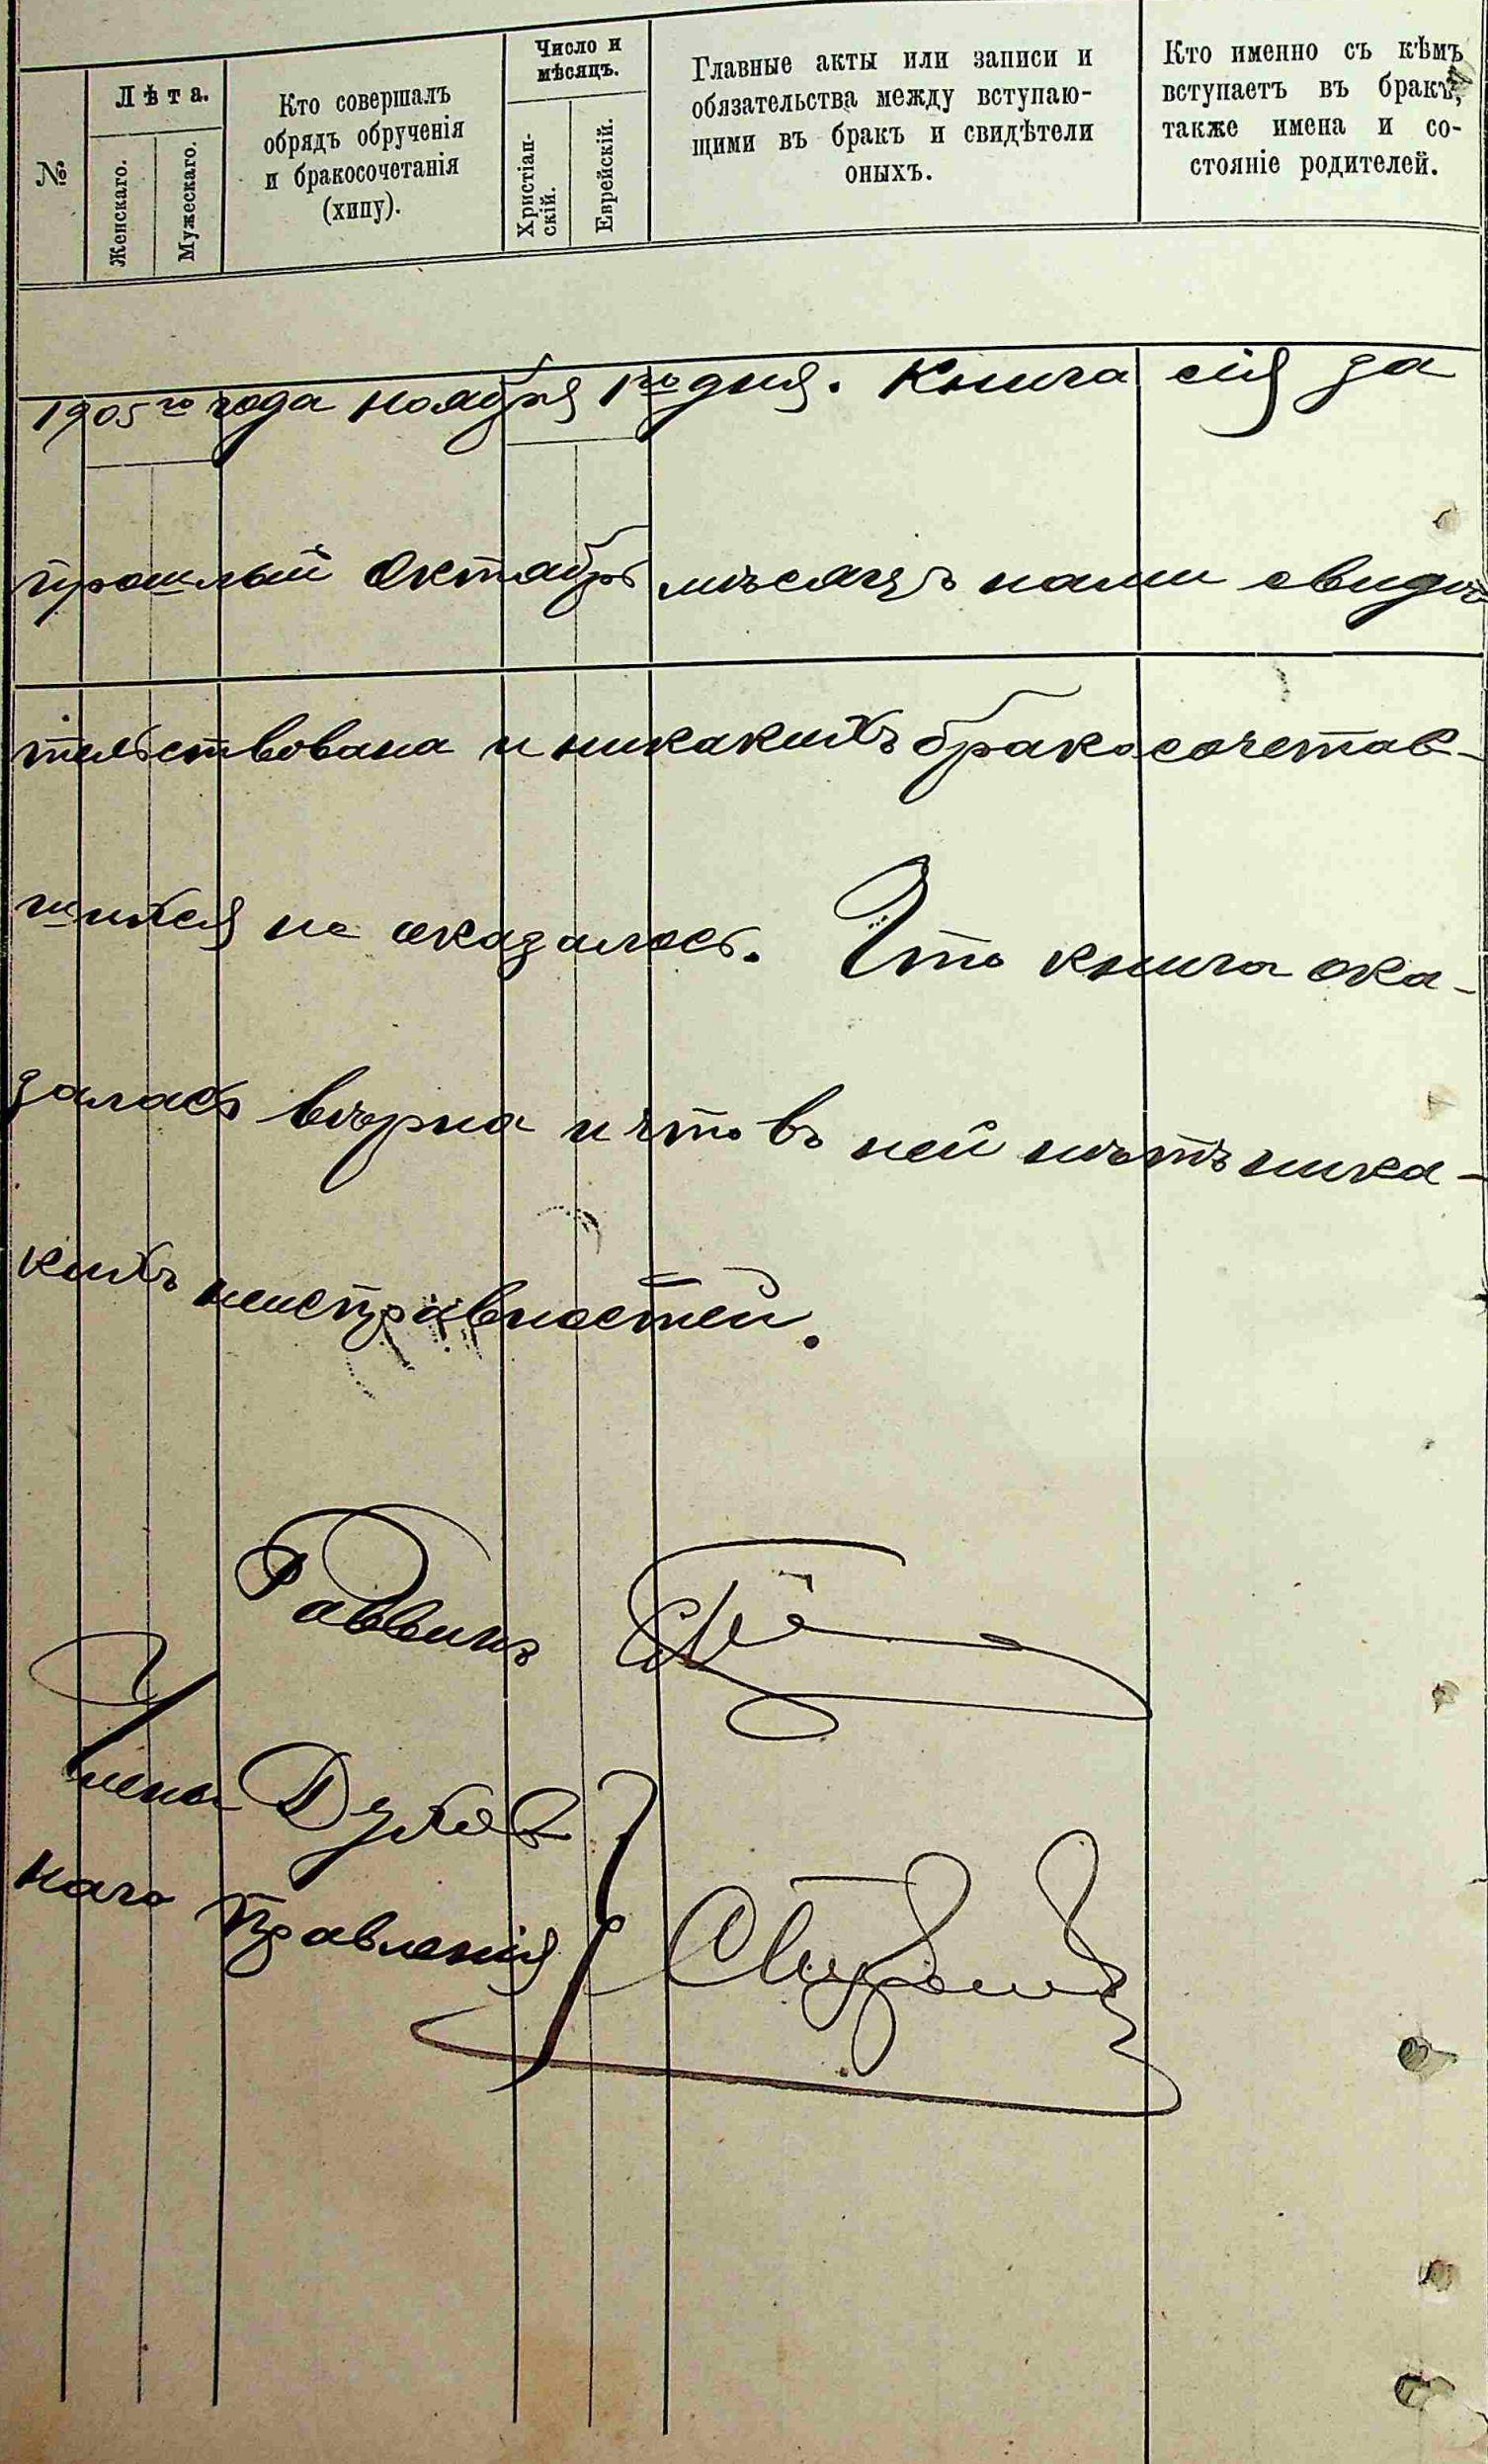 №
Лѣта.
Женскаго.
Мужескаго.
Кто совершалъ
обрядъ обрученія
и бракосочетанія
(хипу).
Число и
мѣсяцъ.
Христіан-
скій.
Еврейскій.
Главные акты или записи и
обязательства между вступаю-
щими въ бракъ и свидѣтели
оныхъ.
Кто именно съ кѣмъ
вступаетъ въ бракъ,
также имена и со-
стояніе родителей.
1905го года ноября 1го дня. Книга сія за
прошлый Октябрь мѣсяцъ нами свидѣ
тельствована и никакихъ бракосочетав-
шихся не оказалось. Что книга ока-
залась вѣрна и что въ ней нѣтъ ника-
кихъ неисправностей.
Раввинъ
Члены Духов
наго Правленія